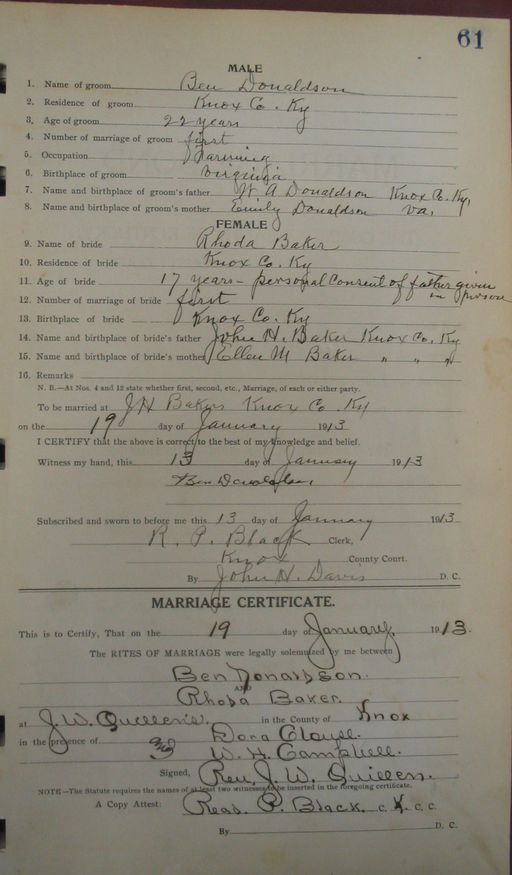 61
MALE
1. Name of groom Ben Donaldson
2. Residence of groom Knox Co. Ky
3. Age of groom 22 years
4. Number of marriage of groom first
5. Occupation Farming
6. Birthplace of groom Virginia
7. Name and birthplace of groom's father W A Donaldson Knox Co. Ky,
8. Name and birthplace of groom's mother Emily Donaldson Va.
FEMALE
9. Name of bride Rhoda Baker
10. Residence of bride Knox Co. Ky
11. Age of bride 17 years - personal consent of father given in person
12. Number of marriage of bride first
13. Birthplace of bride Knox Co. Ky
14. Name and birthplace of bride's father John H. Baker Knox Co. Ky
15. Name and birthplace of bride's mother Ellen M Baker " " "
16. Remarks
N. B.—At Nos. 4 and 12 state whether first, second, etc., Marriage, of each or either party.
To be married at J H Bakers Knox Co. Ky
on the 19 day of January 1913
I CERTIFY that the above is correct to the best of my knowledge and belief.
Witness my hand, this 13 day of January 1913
Ben Donaldson,
Subscribed and sworn to before me this 13 day of January 1913
R. P. Black Clerk,
Knox County Court.
By John H. Davis D. C.
MARRIAGE CERTIFICATE.
This is to Certify, That on the 19 day of January, 1913.
The RITES OF MARRIAGE were legally solemnized by me between
Ben Donaldson.
AND
Rhoda Baker.
at J. W. Quillen's. in the County of Knox
in the presence of Dora Clouse.
and W. H. Campbell.
Signed, Rev. J. W. Quillen.
NOTE—The Statute requires the names of at least two witnesses to be inserted in the foregoing certificate.
A Copy Attest: Read P. Black. C. K. C. C.
By D. C.